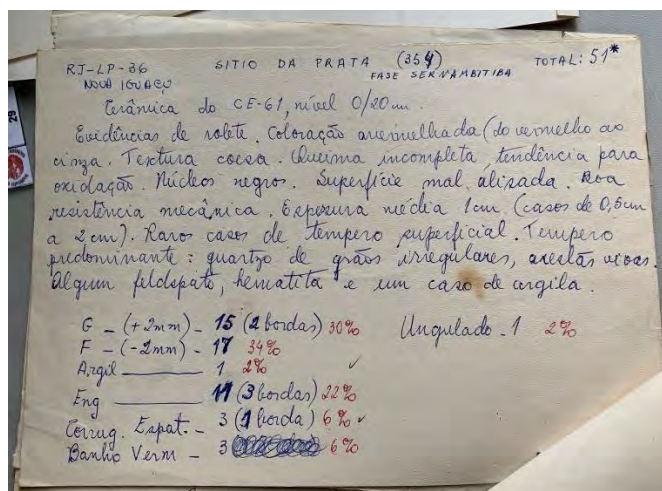 RJ-LP-36 SITIO DA PRATA (354) TOTAL: 51*
NOVA IGUAÇU FASE SERNAMBITIBA
Cerâmica do CE-61, nível 0/20 cm.
Evidências de rolete. Coloração avermelhada (do vermelho ao
cinza. Textura coesa. Queima incompleta, tendência para
oxidação. Núcleos negros. Superfície mal alisada. Boa
resistência mecânica. Espessura média 1cm. (casos de 0,5cm
a 2cm). Raros casos de tempero superficial. Tempero
predominante: quartzo de grãos irregulares, arestas vivas.
Algum feldspato, hematita e um caso de argila.
G - (+2mm) - 15 (2 bordas) 30% Ungulado - 1 2%
F - (-2mm) - 17 34%
Argil - 1 2% ✓
Eng - 11 (3 bordas) 22%
Corrug. Espat. - 3 (1 borda) 6% ✓
Banho Verm - 3 6%
29